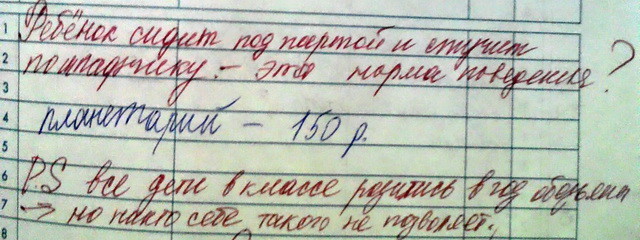 1 Ребёнок сидит под партой и стучит
2 по шкафчику. – это норма поведения?
3
4 планетарий – 150 р.
5
6 P.S все дети в классе родились в год обезьяны
7 → но никто себе такого не позволяет.
8